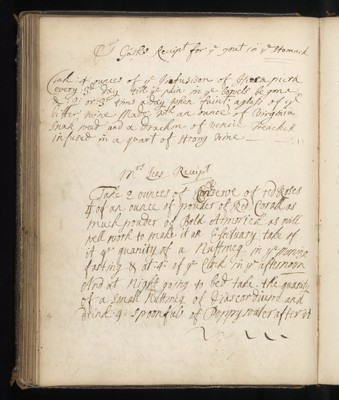 Dr Casks Receipt for ye gout in ye Stomack
Take 4 ounces of ye Infusion of Hiera picra
every 3d day till ye pain in ye Bowels be gone
& 2 or 3 times a day when faint, a glass of ys
bitter wine Made with an ounce of Virginia
Snak root and a drachm of venice Treacle
infused in a quart of Strong wine
Mrs Lees Receipt
Take 2 ounces of Conserve of red Roses
of an ounce of powder of Red Corall as
much powder of Bole Armorick as will
well work to make it an Electuary take of
it ye quanity of a Nuttmeg in ye morning
fasting & at 4 of ye Clock in ye afternoon
And at Night going to bed take the quanity
of a Small Nutmeg of Diascordium and
drink 4 spoonfuls of Poppy water after it